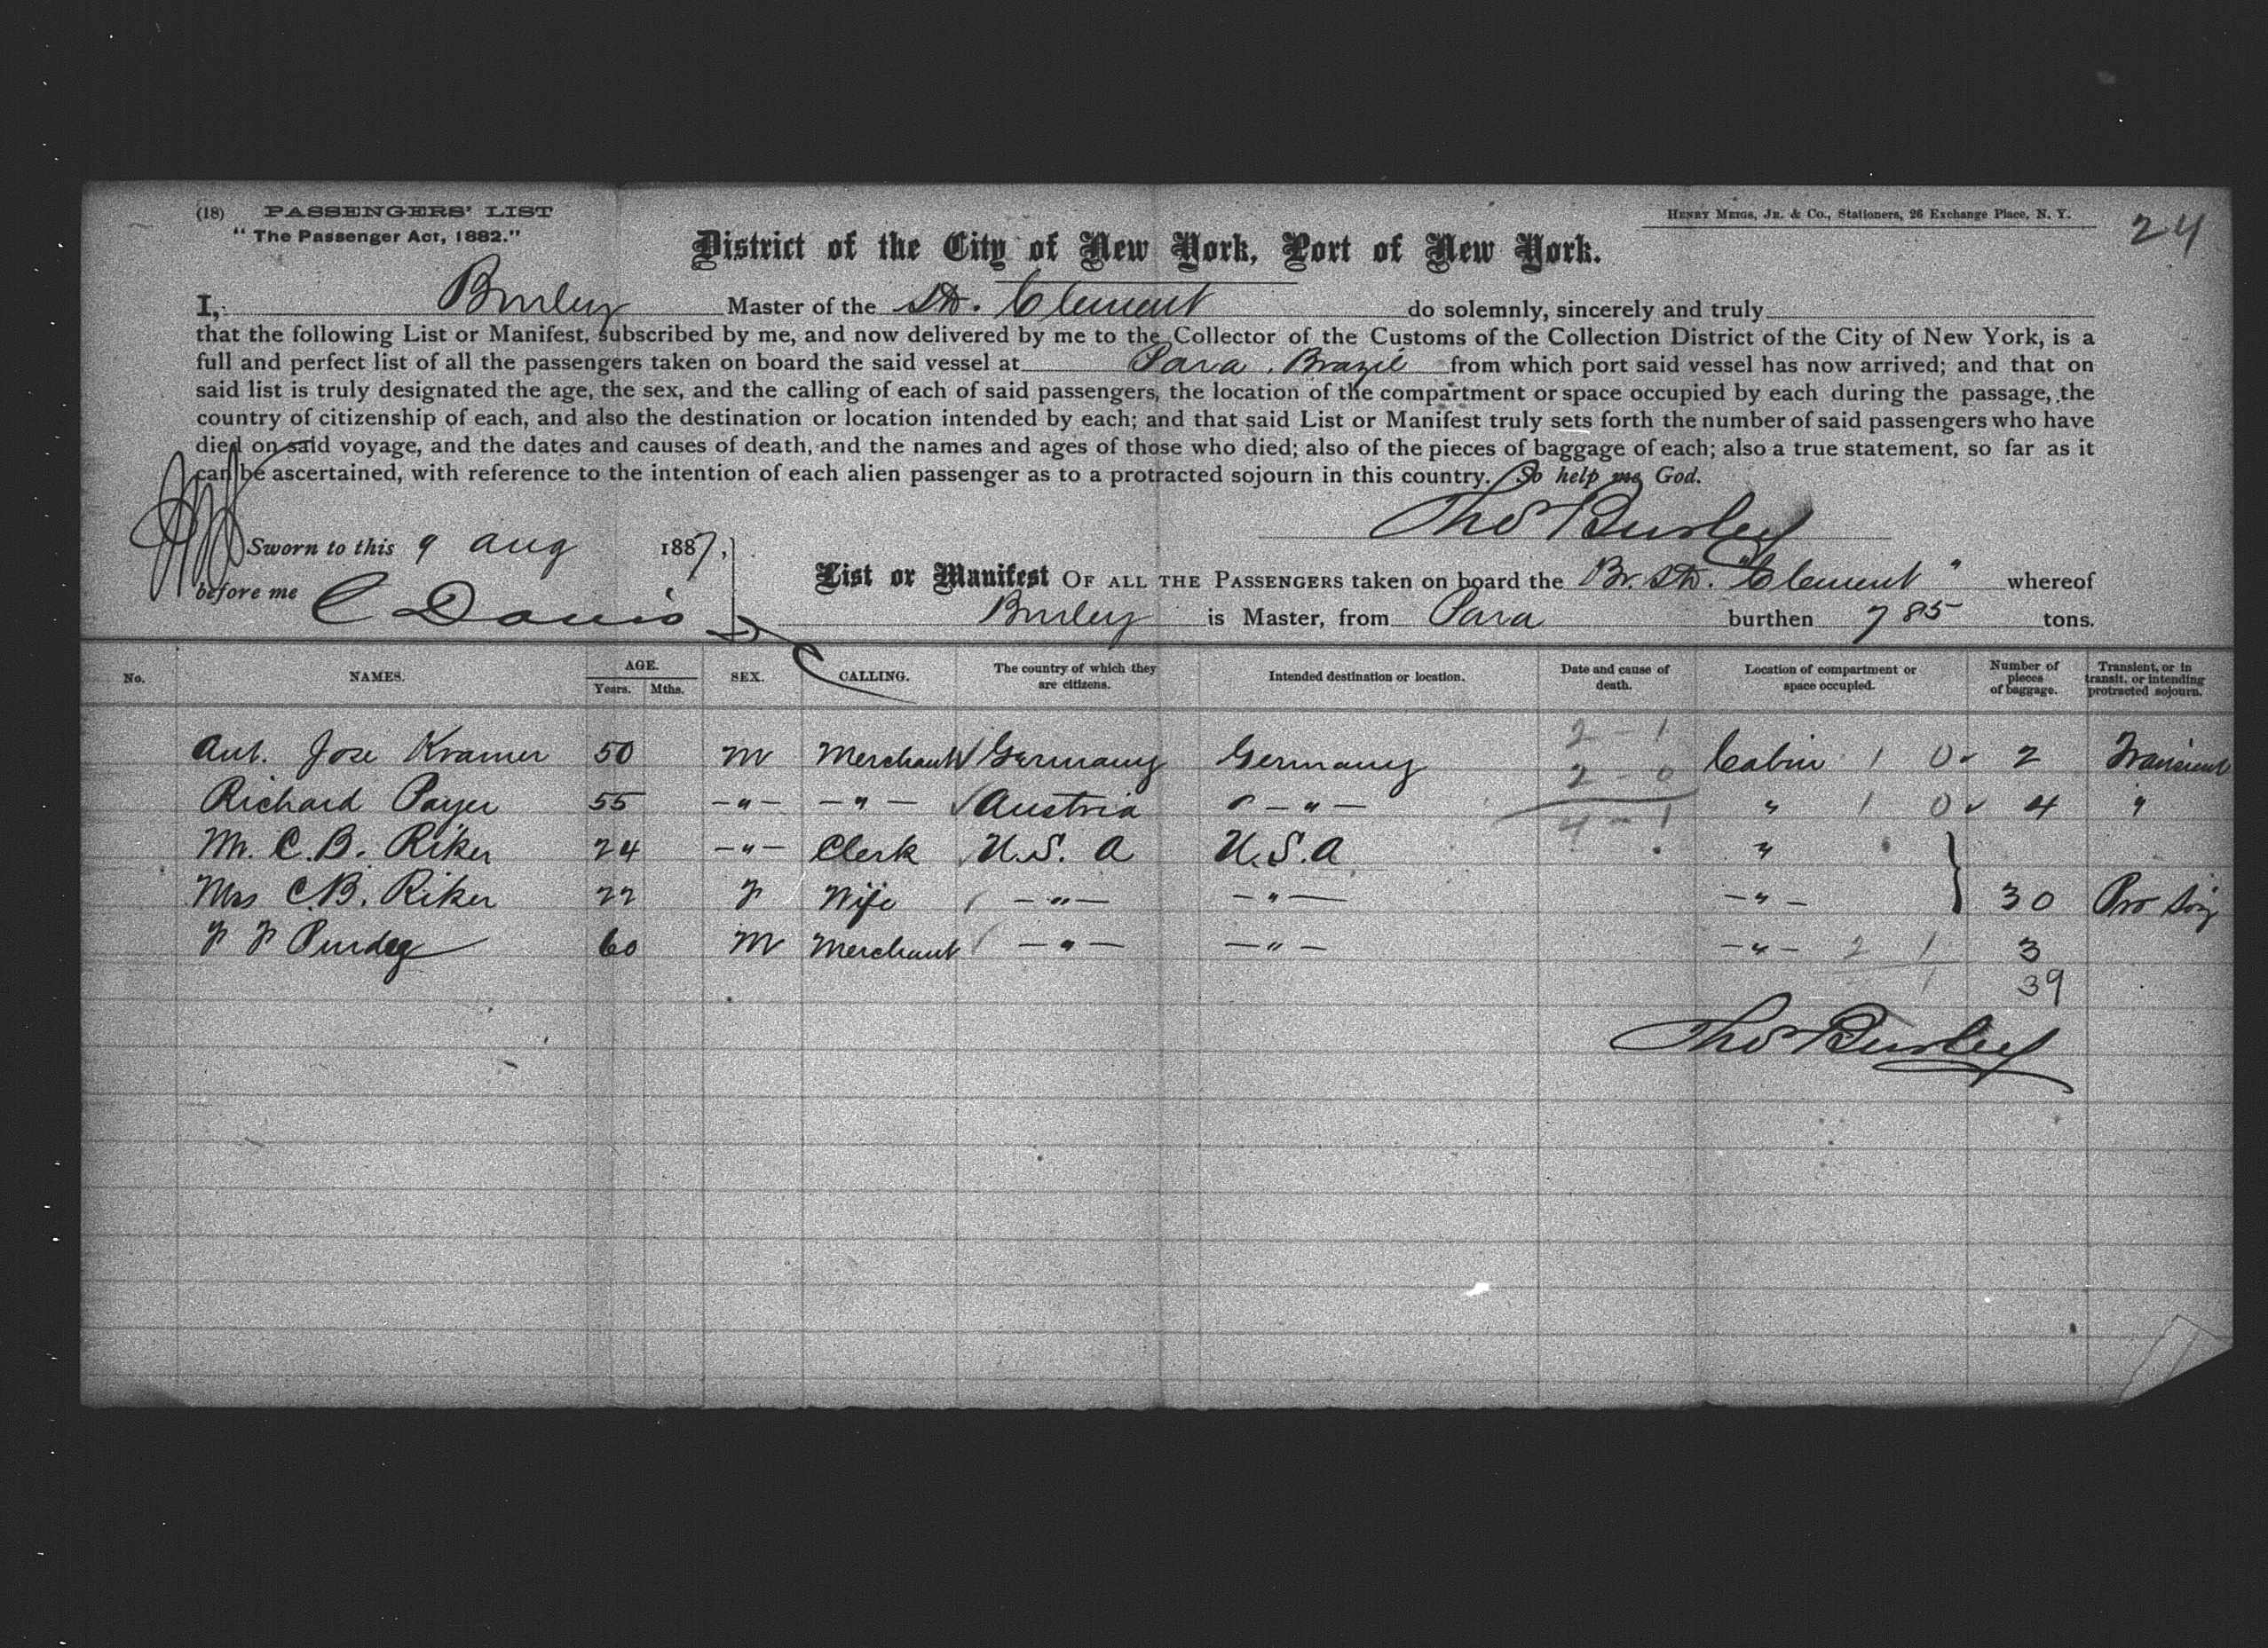 (18) PASSENGERS' LIST
"The Passenger Act, 1882."
HENRY MEIGS, JR. & CO., Stationers, 26 Exchange Place, N. Y.
24
District of the City of New York, Port of New York.
I, Burley Master of the Str. Clement do solemnly, sincerely and truly
that the following List or Manifest, subscribed by me, and now delivered by me to the Collector of the Customs of the Collection District of the City of New York, is a
full and perfect list of all the passengers taken on board the said vessel at Para, Brazil from which port said vessel has now arrived; and that on
said list is truly designated the age, the sex, and the calling of each of said passengers, the location of the compartment or space occupied by each during the passage, the
country of citizenship of each, and also the destination or location intended by each; and that said List or Manifest truly sets forth the number of said passengers who have
died on said voyage, and the dates and causes of death, and the names and ages of those who died; also of the pieces of baggage of each; also a true statement, so far as it
can be ascertained, with reference to the intention of each alien passenger as to a protracted sojourn in this country. So help me God.
Thos Burley
Sworn to this 9 Aug 1887,
before me C Davis
List or Manifest OF ALL THE PASSENGERS taken on board the Br. Str. "Clement" whereof
Burley is Master, from Para burthen 785 tons.
No. NAMES. AGE. Years. Mths. SEX. CALLING. The country of which they are citizens. Intended destination or location. Date and cause of death. Location of compartment or space occupied. Number of pieces of baggage. Transient, or in transit, or intending protracted sojourn.
2 - 1
Ant. Jose Kramer 50 M Merchant Germany Germany Cabin 1 0 2 Transient
2 - 0
Richard Payer 55 -"- -"- Austria -"- " 1 0 4 "
4 - 1
Mr. C. B. Riker 24 -"- Clerk U.S. A U.S.A "
Mrs C. B. Riker 22 F Wife -"- -"- -"- 30 Pro Soj
F F Purdy 60 M Merchant -"- -"- -"- 2 1 3
1 39
Thos Burley